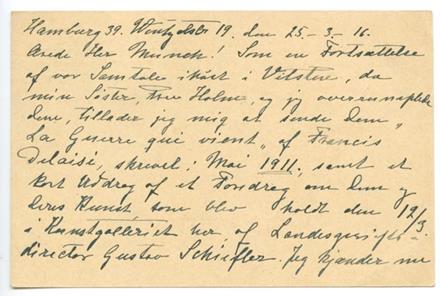 Hamburg 39. Wentzelstr 19. den 25-3-16.
Ærede Herr Munch! Som en Fortsættelse
af vor Samtale ihøst i Vitsten, da
min Søster, Frue Holm, og jeg overrumplede
Dem, tillader jeg mig at sende Dem "
La Guerre qui vient" af Francis
Delaisi, skrevet i Mai 1911, samt et
kort Uddrag af et Foredrag om Dem og
Deres Kunst som blev holdt den 12/3.
i Kunstgalleriet her, af Landesgerichts-
director Gustav Schiefler. Jeg kjender nu